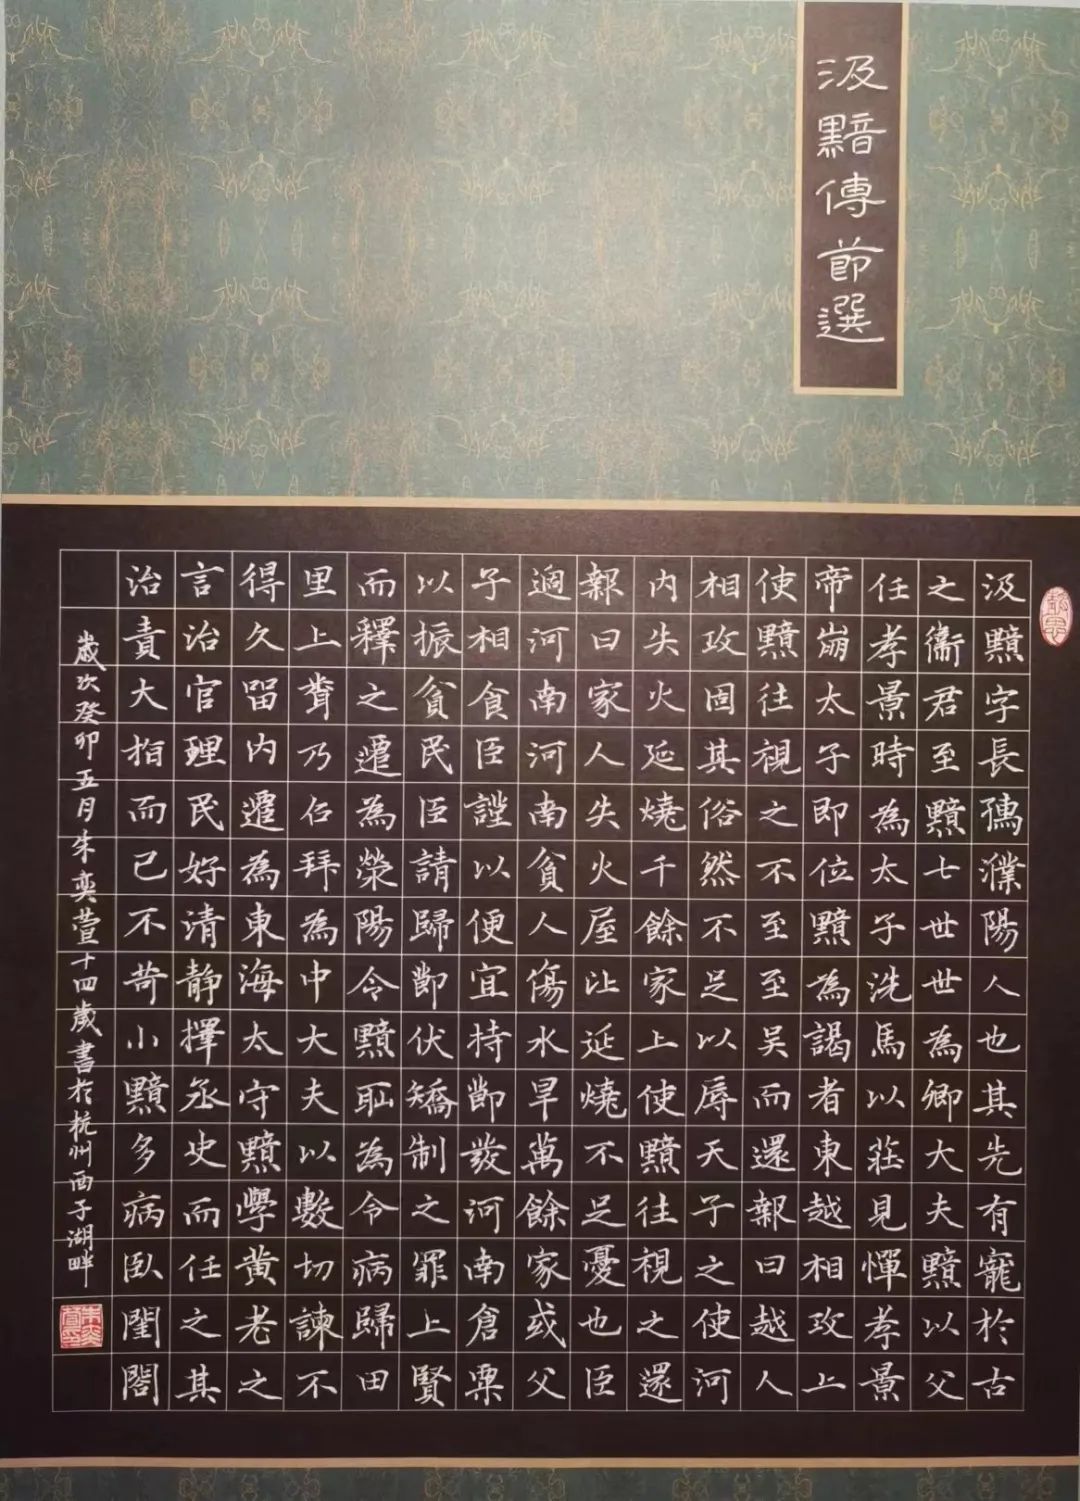 汲黯傳節選
汲黯字長孺濮陽人也其先有寵於古
之衞君至黯七世世為卿大夫黯以父
任孝景時為太子洗馬以莊見憚孝景
帝崩太子即位黯為謁者東越相攻上
使黯往視之不至至吳而還報曰越人
相攻固其俗然不足以辱天子之使河
内失火延燒千餘家上使黯往視之還
報曰家人失火屋比延燒不足憂也臣
過河南河南貧人傷水旱萬餘家或父
子相食臣謹以便宜持節發河南倉粟
以振貧民臣請歸節伏矯制之罪上賢
而釋之遷為榮陽令黯恥為令病歸田
里上聞乃召拜為中大夫以數切諫不
得久留内遷為東海太守黯學黃老之
言治官理民好清靜擇丞史而任之其
治責大指而已不苛小黯多病臥閨閤
歲次癸卯五月朱奕萱十四歲書於杭州西子湖畔
朱奕萱印